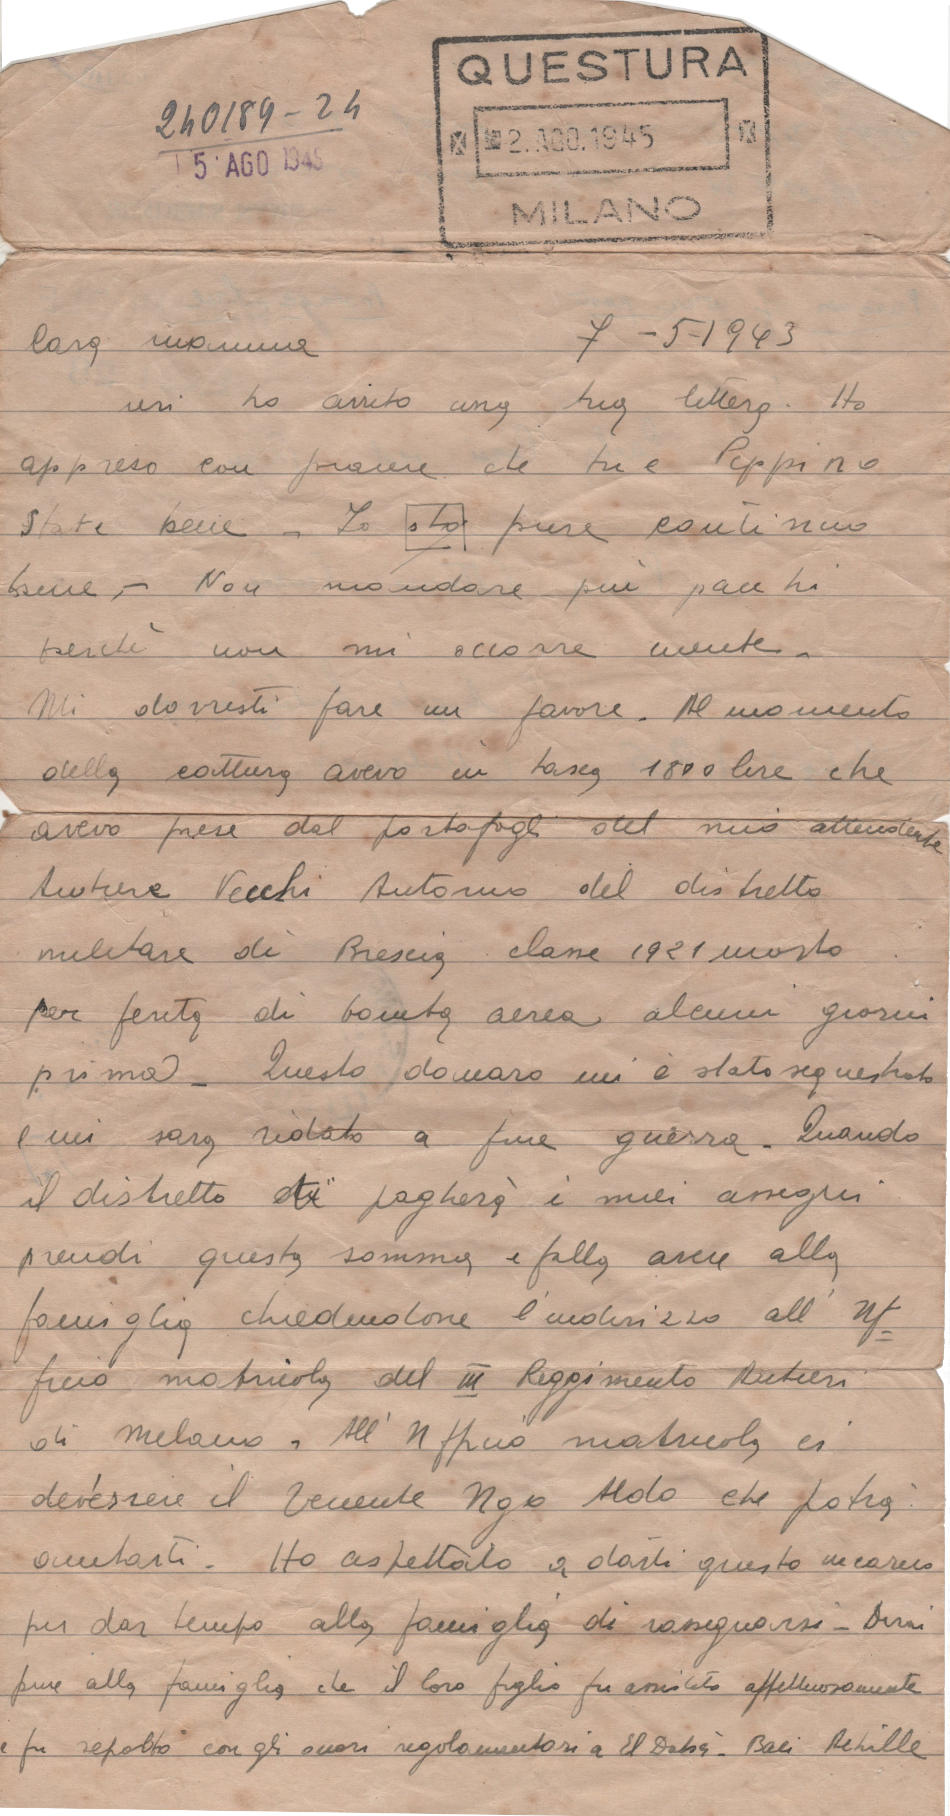 QUESTURA
240189-24
2.AGO.1945
5 AGO 1945
MILANO
Cara mamma 7-5-1943
ieri ho avuto una tua lettera. Ho
appreso con piacere che tu e Peppino
state bene - Io sto pure continuo
bene, - Non mandare più pacchi
perchè non mi occorre niente -
Mi dovresti fare un favore. Al momento
della cattura avevo in tasca 1800 lire che
avevo prese dal portafogli del mio attendente
Autiere Vecchi Antonio del distretto
militare di Brescia classe 1921 morto
per ferita di bomba aerea alcuni giorni
prima - Questo danaro mi è stato sequestrato
e mi sarà ridato a fine guerra - Quando
il distretto ti pagherà i miei assegni
prendi questa somma e falla avere alla
famiglia chiedendone l'indirizzo all' Uf=
ficio matricola del III Reggimento Autieri
di Milano. All' Ufficio matricola ci
dev'essere il Tenente Ugo Aldo che potrà
aiutarti. Ho aspettato a darti questo incarico
per dar tempo alla famiglia di rassegnarsi - Dirai
pure alla famiglia che il loro figlio fu assistito affettuosamente
e fu sepolto con gli onori regolamentari a El Daba - Baci Achille